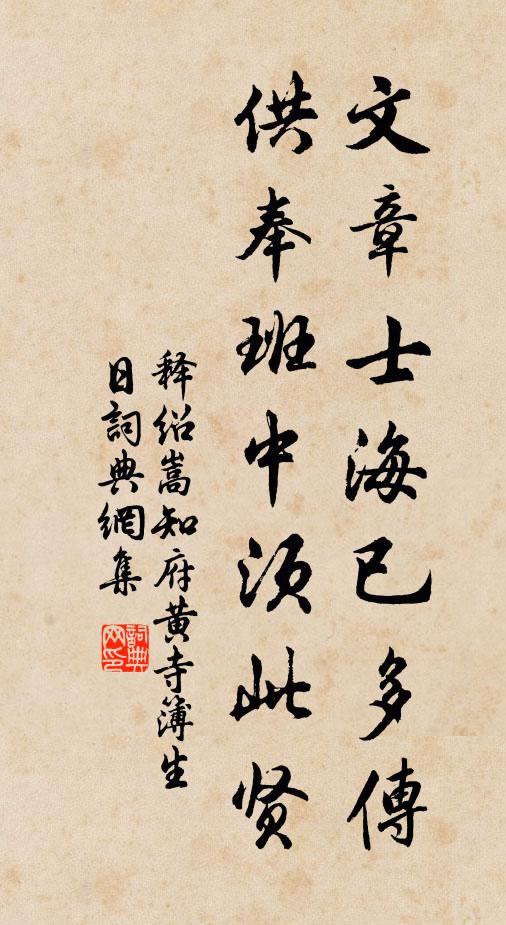 文章士海已多傳
供奉班中須此贤
释绍嵩知府黄寺簿生
日詞典網集
詞典
网印